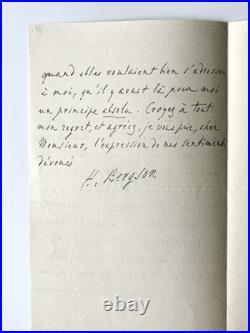 quand elles voulaient bien s'adresser
à moi, qu'il y avait là, pour moi
un principe absolu. Croyez à tout
mon regret, et agréez, je vous prie, cher
Monsieur, l'expression de mes sentiments
dévoués
H. Bergson